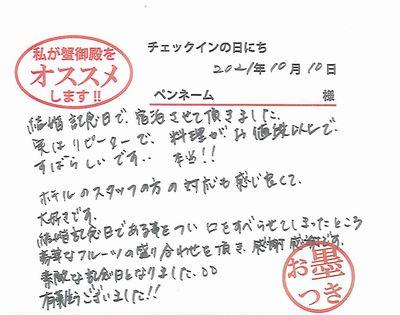 私が蟹御殿を
オススメ
します!!
チェックインの日にち
2021年10月10日
ペンネーム 様
結婚記念日で、宿泊させて頂きました。
実はリピーターで、料理がお値段以上で、
すばらしいです。本当!!
ホテルのスタッフの方の対応も感じ良くて、
大好きです。
結婚記念日である事をつい口をすべらせてしまったところ
豪華なフルーツの盛り合わせを頂き、感謝感謝です。
素敵な記念日となりました。
有難うございました!!
お墨つき